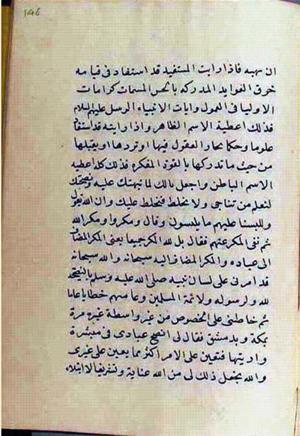 146
ان سهبه فاذا رايت المستفيد قد استفاد في قيامه
خرق العوايد المدركه بالحس المسمات كرامات
الاوليا في العموم وايات الانبياء والرسل عليهم السلام
فذلك اعطية الاسم الظاهر واذا رايته قد استفاد
علوما وحكما تحار العقول فيها او تردها او يقبلها
من حيث ما تدركها بالقوة المفكره فذلك كله اعطيه
الاسم الباطن واجعل بالك لما نبهتك عليه ونصحتك
لتعلم من تناجى ولا تخلط فيخلط عليك وان الله تعالى
وللبسنا عليهم ما يلبسون وقال ومكروا ومكر الله
ثم نفى المكر عنهم فقال بل لله المكر جميعا يعنى المكر المضاف
الى عباده والمكر المضاف اليه سبحانه والله سبحانه
قد امرنى على لسان نبيه صلى الله عليه وسلم بالنصيحة
لله ولرسوله ولائمة المسلمين وعامتهم خطابا عاما
ثم خاطبنى على الخصوص من غير واسطة غير مرة
بمكة وبدمشق فقال لى انصح عبادى في مبشرة
واريتها فتعين على الامر اكثر مما يعين على غيرى
والله يجعل ذلك لى من الله عناية وتشريفا لا ابتلاء